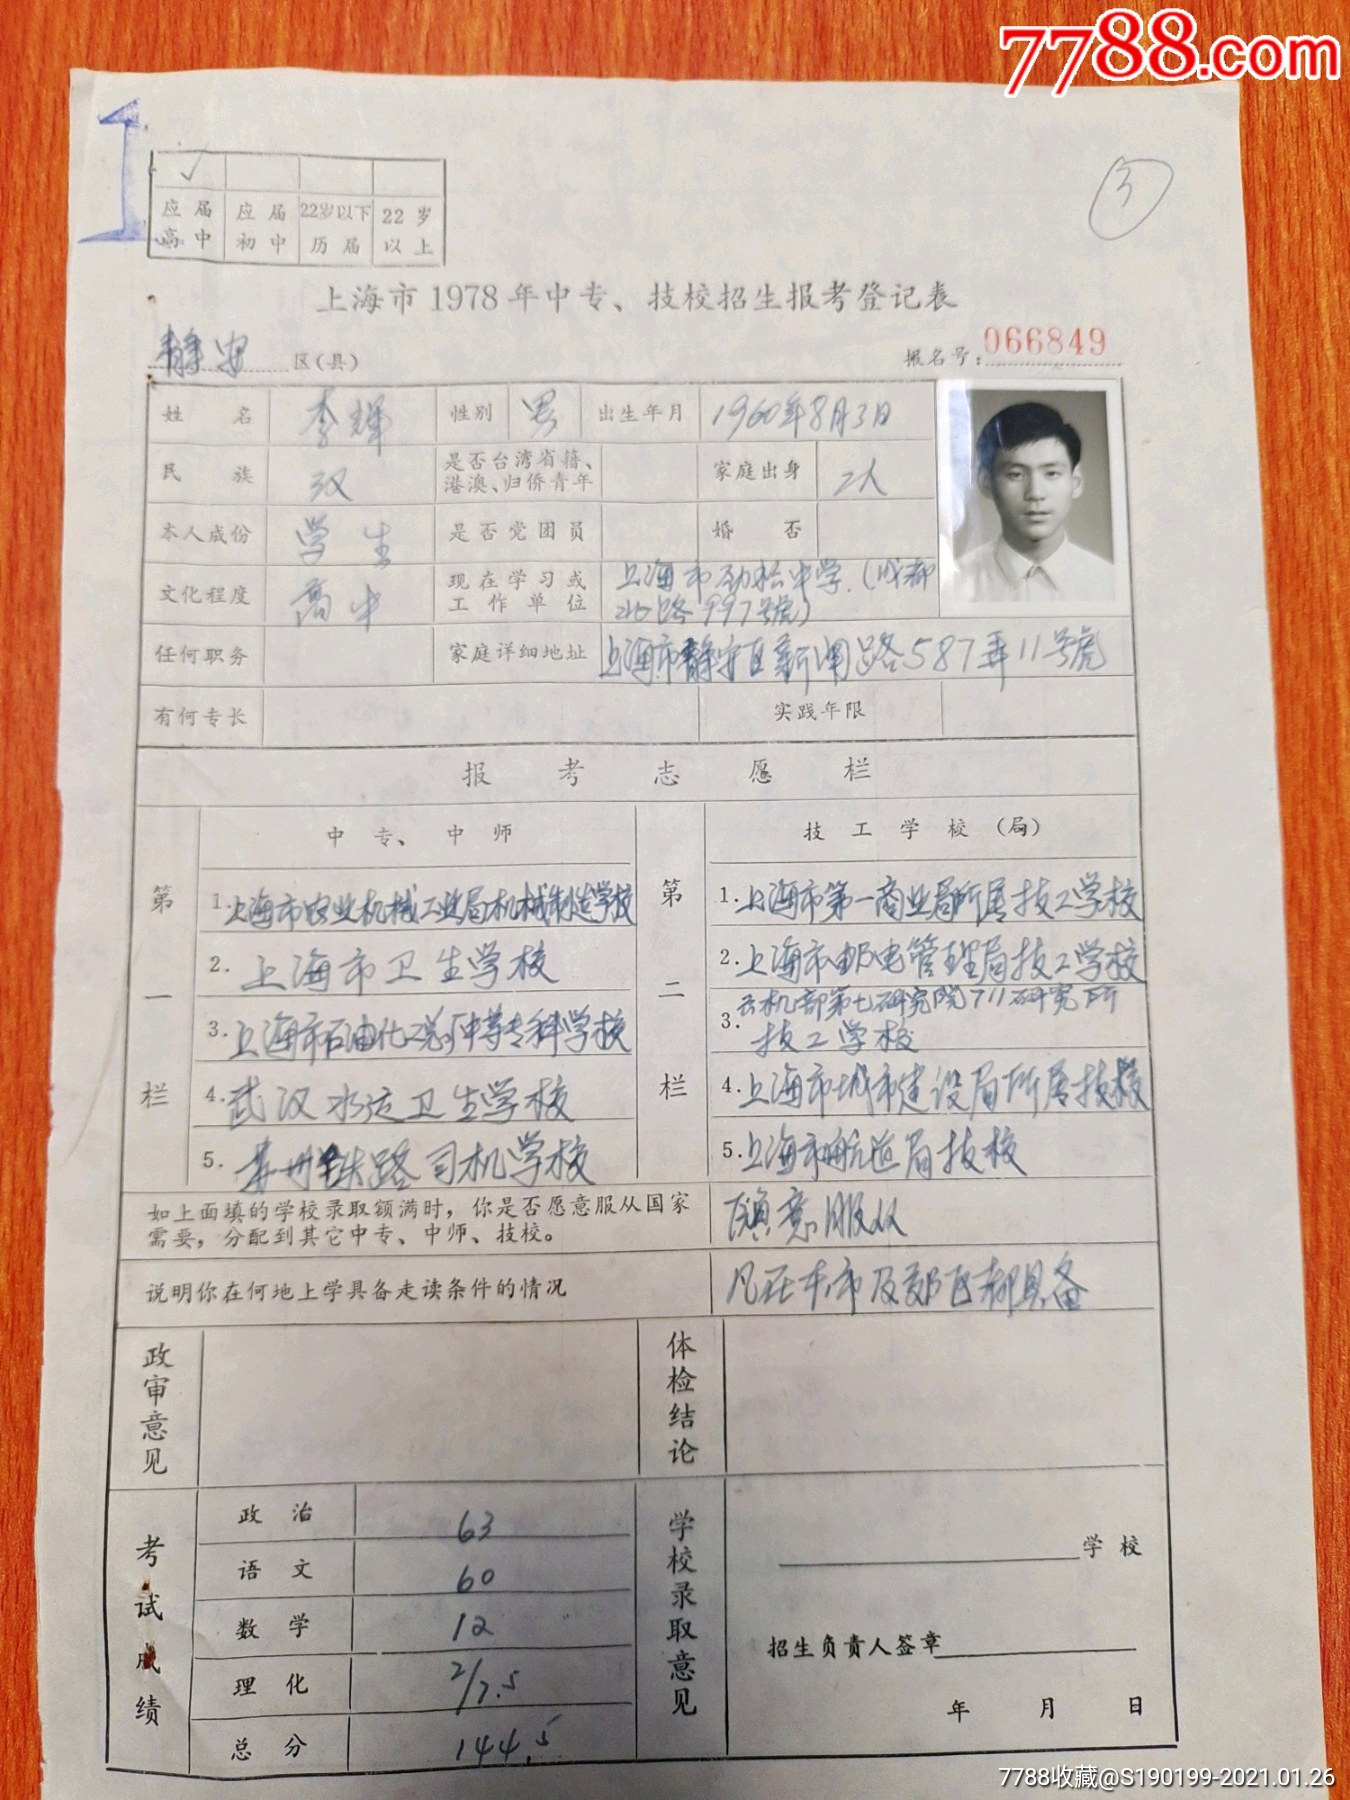 7788.com
1
③
✓
应届高中 应届初中 22岁以下历届 22岁以上
上海市1978年中专、技校招生报考登记表
静安区(县) 报名号:066849
姓名 李辉 性别 男 出生年月 1960年8月3日
民族 汉 是否台湾省籍、港澳、归侨青年 家庭出身 工人
本人成份 学生 是否党团员 婚否
文化程度 高中 现在学习或工作单位 上海市劲松中学.(成都北路997号)
任何职务 家庭详细地址 上海市静安区新闸路587弄11号
有何专长 实践年限
报考志愿栏
第一栏 中专、中师
1.上海市农业机械工业局机械制造学校
2.上海市卫生学校
3.上海市石油化工总厂中等专科学校
4.武汉水运卫生学校
5.铁路司机学校
第二栏 技工学校(局)
1.上海市第一商业局所属技工学校
2.上海市邮电管理局技工学校
3.六机部第七研究院711研究所技工学校
4.上海市城市建设局所属技校
5.上海市航道局技校
如上面填的学校录取额满时,你是否愿意服从国家需要,分配到其它中专、中师、技校。 愿意服从
说明你在何地上学具备走读条件的情况 凡在本市及郊区都具备
政审意见 体检结论
考试成绩
政治 63
语文 60
数学 12
理化 2/7.5
总分 144.5
学校录取意见
学校
招生负责人签章
年 月 日
7788收藏@S190199-2021.01.26